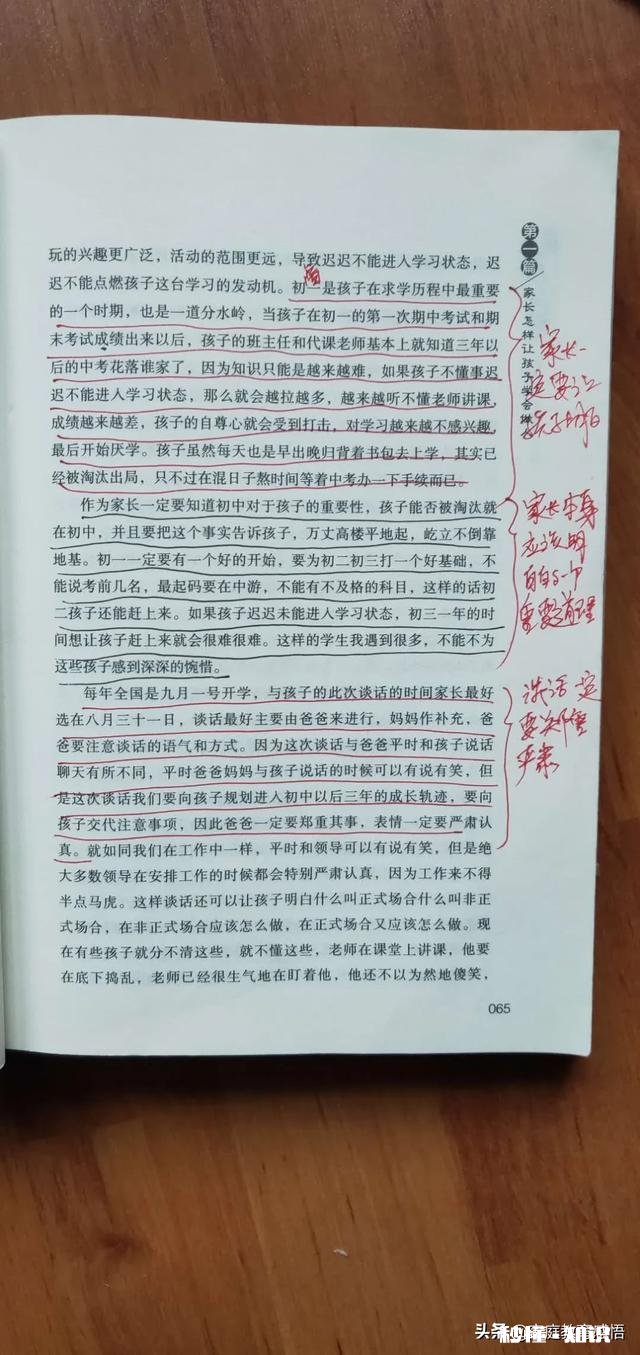 玩的兴趣更广泛，活动的范围更远，导致迟迟不能进入学习状态，迟
迟不能点燃孩子这台学习的发动机。初一是孩子在求学历程中最重要
的一个时期，也是一道分水岭，当孩子在初一的第一次期中考试和期
末考试成绩出来以后，孩子的班主任和代课老师基本上就知道三年以
后的中考花落谁家了，因为知识只能是越来越难，如果孩子不懂事迟
迟不能进入学习状态，那么就会越拉越多，越来越听不懂老师讲课，
成绩越来越差，孩子的自尊心就会受到打击，对学习越来越不感兴趣，
最后开始厌学。孩子虽然每天也是早出晚归背着书包去上学，其实已
经被淘汰出局，只不过在混日子熬时间等着中考办一下手续而已。
作为家长一定要知道初中对于孩子的重要性，孩子能否被淘汰就
在初中，并且要把这个事实告诉孩子，万丈高楼平地起，屹立不倒靠
地基。初一一定要有一个好的开始，要为初二初三打一个好基础，不
能说考前几名，最起码要在中游，不能有不及格的科目，这样的话初
二孩子还能赶上来。如果孩子迟迟未能进入学习状态，初三一年的时
间想让孩子赶上来就会很难很难。这样的学生我遇到很多，不能不为
这些孩子感到深深的惋惜。
每年全国是九月一号开学，与孩子的此次谈话的时间家长最好
选在八月三十一日，谈话最好主要由爸爸来进行，妈妈作补充，爸
爸要注意谈话的语气和方式。因为这次谈话与爸爸平时和孩子说话
聊天有所不同，平时爸爸妈妈与孩子说话的时候可以有说有笑，但
是这次谈话我们要向孩子规划进入初中以后三年的成长轨迹，要向
孩子交代注意事项，因此爸爸一定要郑重其事，表情一定要严肃认
真。就如同我们在工作中一样，平时和领导可以有说有笑，但是绝
大多数领导在安排工作的时候都会特别严肃认真，因为工作来不得
半点马虎。这样谈话还可以让孩子明白什么叫正式场合什么叫非正
式场合，在非正式场合应该怎么做，在正式场合又应该怎么做。现
在有些孩子就分不清这些，就不懂这些，老师在课堂上讲课，他要
在底下捣乱，老师已经很生气地在盯着他，他还不以为然地傻笑，
065
第一篇
家长怎样让孩子学会做
家长一
定要让
孩子明白
家长本身
应该明
白的一个
重要道理
谈话一定
要郑重
严肃
头条
家庭教育感悟